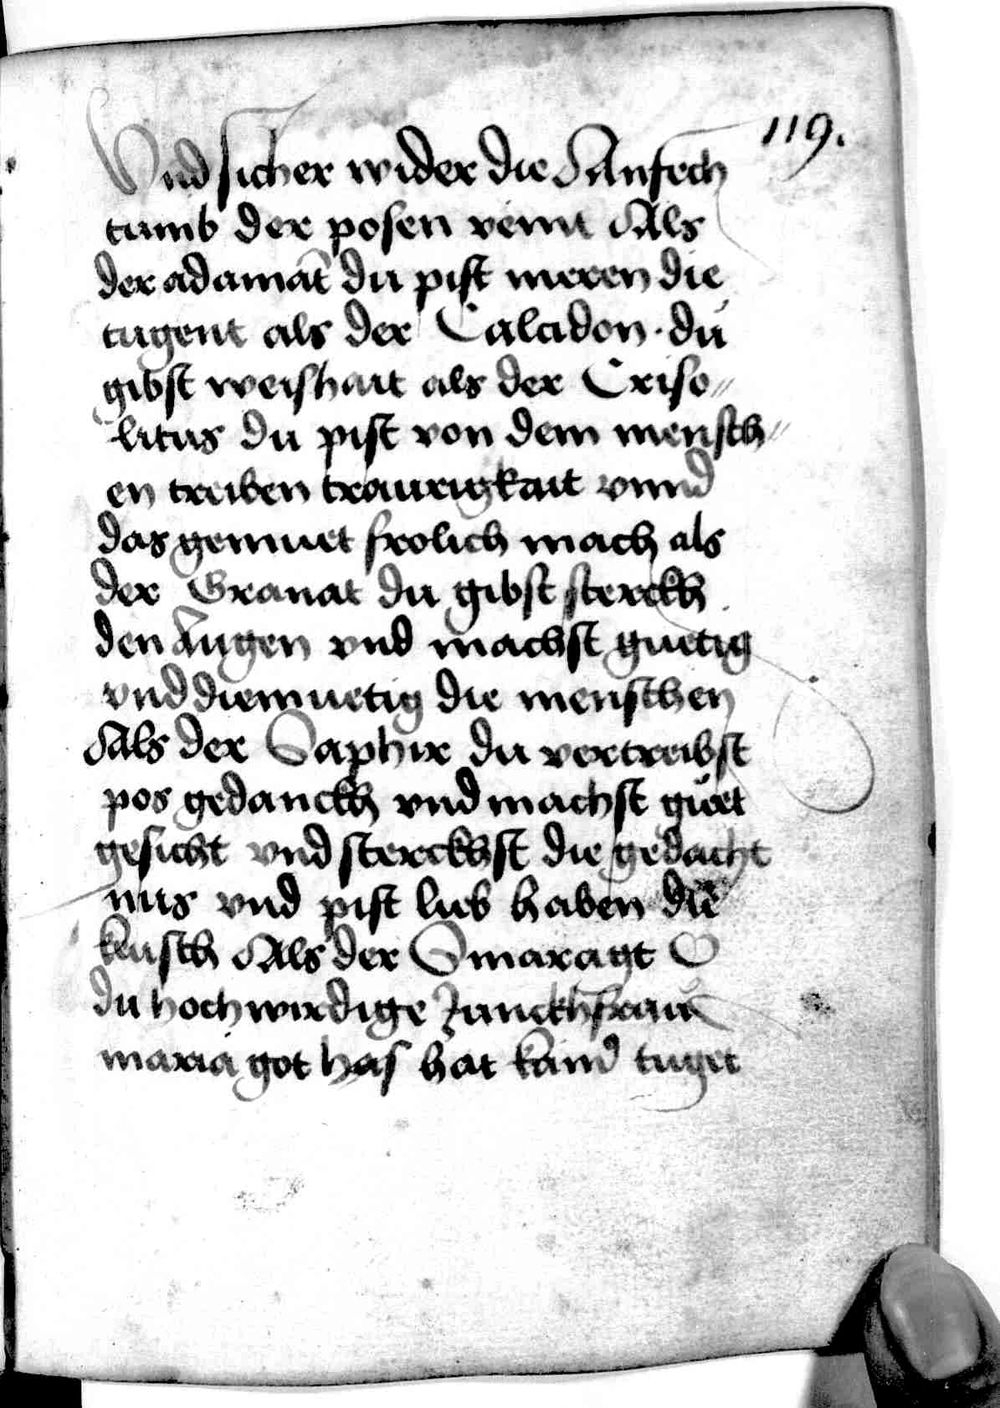 119.
Vnd sicher wider die Anfech
tumb der posen veint Als
der adamāt du pist meren die
tugent als der Calcidon · du
gibst weishait als der Criso〃
litus du pist von dem mensch〃
en treiben traurigkait vnnd
das gemuet frolich mach als
der Granat du gibst sterckh
den Augen vnd machst guetig
vnd diemuetig die menschen
Als der Saphir du vertreibst
pos gedanckh vnd machst guet
gesicht vnd sterckhst die gedacht
nus vnd pist lieb haben die
keusch Als der Smaragt O
du hochwirdige Junckhfrau
maria got has hat kaind tuget